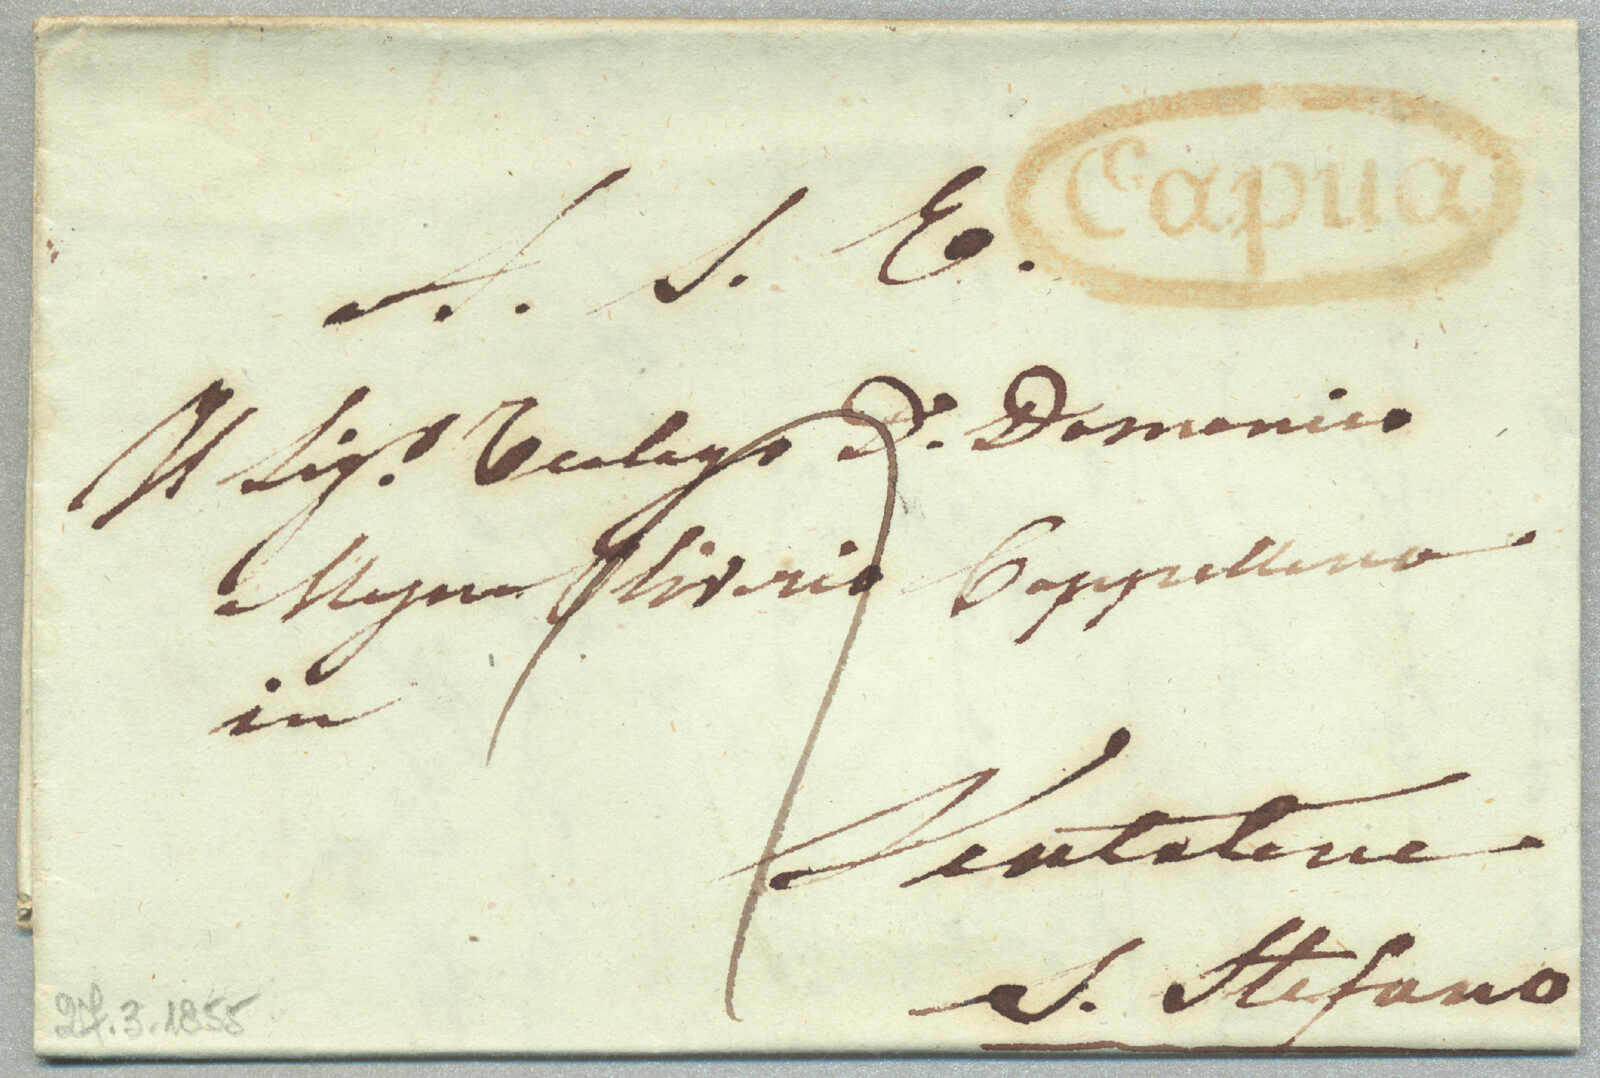 Capua
A. S. E.
Al Sig.r Teologo D.n Domenico
Magna Oliverio Cappellano
in
Ventotene
S. Stefano
27.3.1855